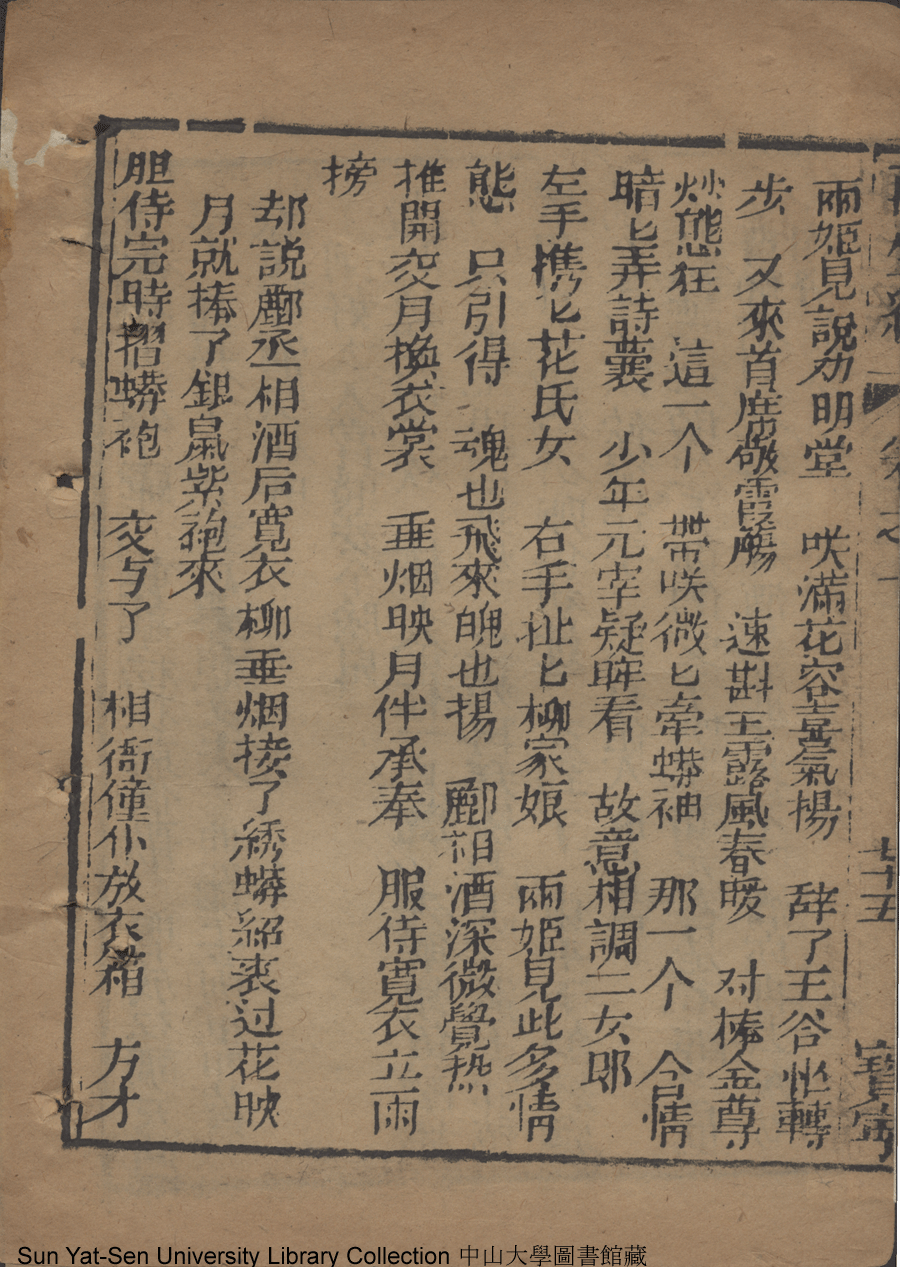 七十五
兩姬見說劝明堂 咲滿花容喜氣揚 辞了王谷坐轉
步 又來首席敬霞觴 速斟玉露風春暖 对捧金尊
炒態狂 這一个 帶咲微匕牽蟒袖 那一个 含情
暗匕弄詩囊 少年元宰疑眸看 故意相調二女郎
左手携匕花氏女 右手扯匕柳家娘 兩姬見此多情
態 只引得 魂也飛來魄也揚 酈相酒深微覺热
推開交月換衣裳 垂烟映月伴承奉 服侍寬衣立兩
搒
却説酈丞相酒后寬衣柳垂烟接了綉蟒紹裘过花映
月就捧了銀鼠紫袍來
胆侍完時摺蟒袍 交与了 相衙僮仆放衣箱 方才
Sun Yat-Sen University Library Collection 中山大學圖書館藏